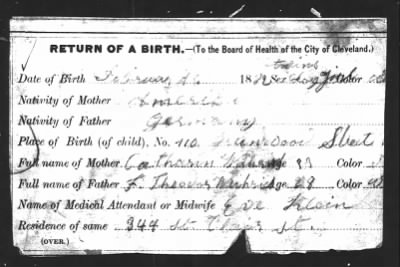 RETURN OF A BIRTH.—(To the Board of Health of the City of Cleveland.)
twins
Date of Birth February 188 Sex Color
Nativity of Mother America
Nativity of Father Germany
Place of Birth (of child), No. 110 Greenwood Street
Full name of Mother Catharin Age 23 Color
Full name of Father F. Theodor Age 29 Color
Name of Medical Attendant or Midwife Eve Klein
Residence of same 344 St. Clair st.
(OVER.)